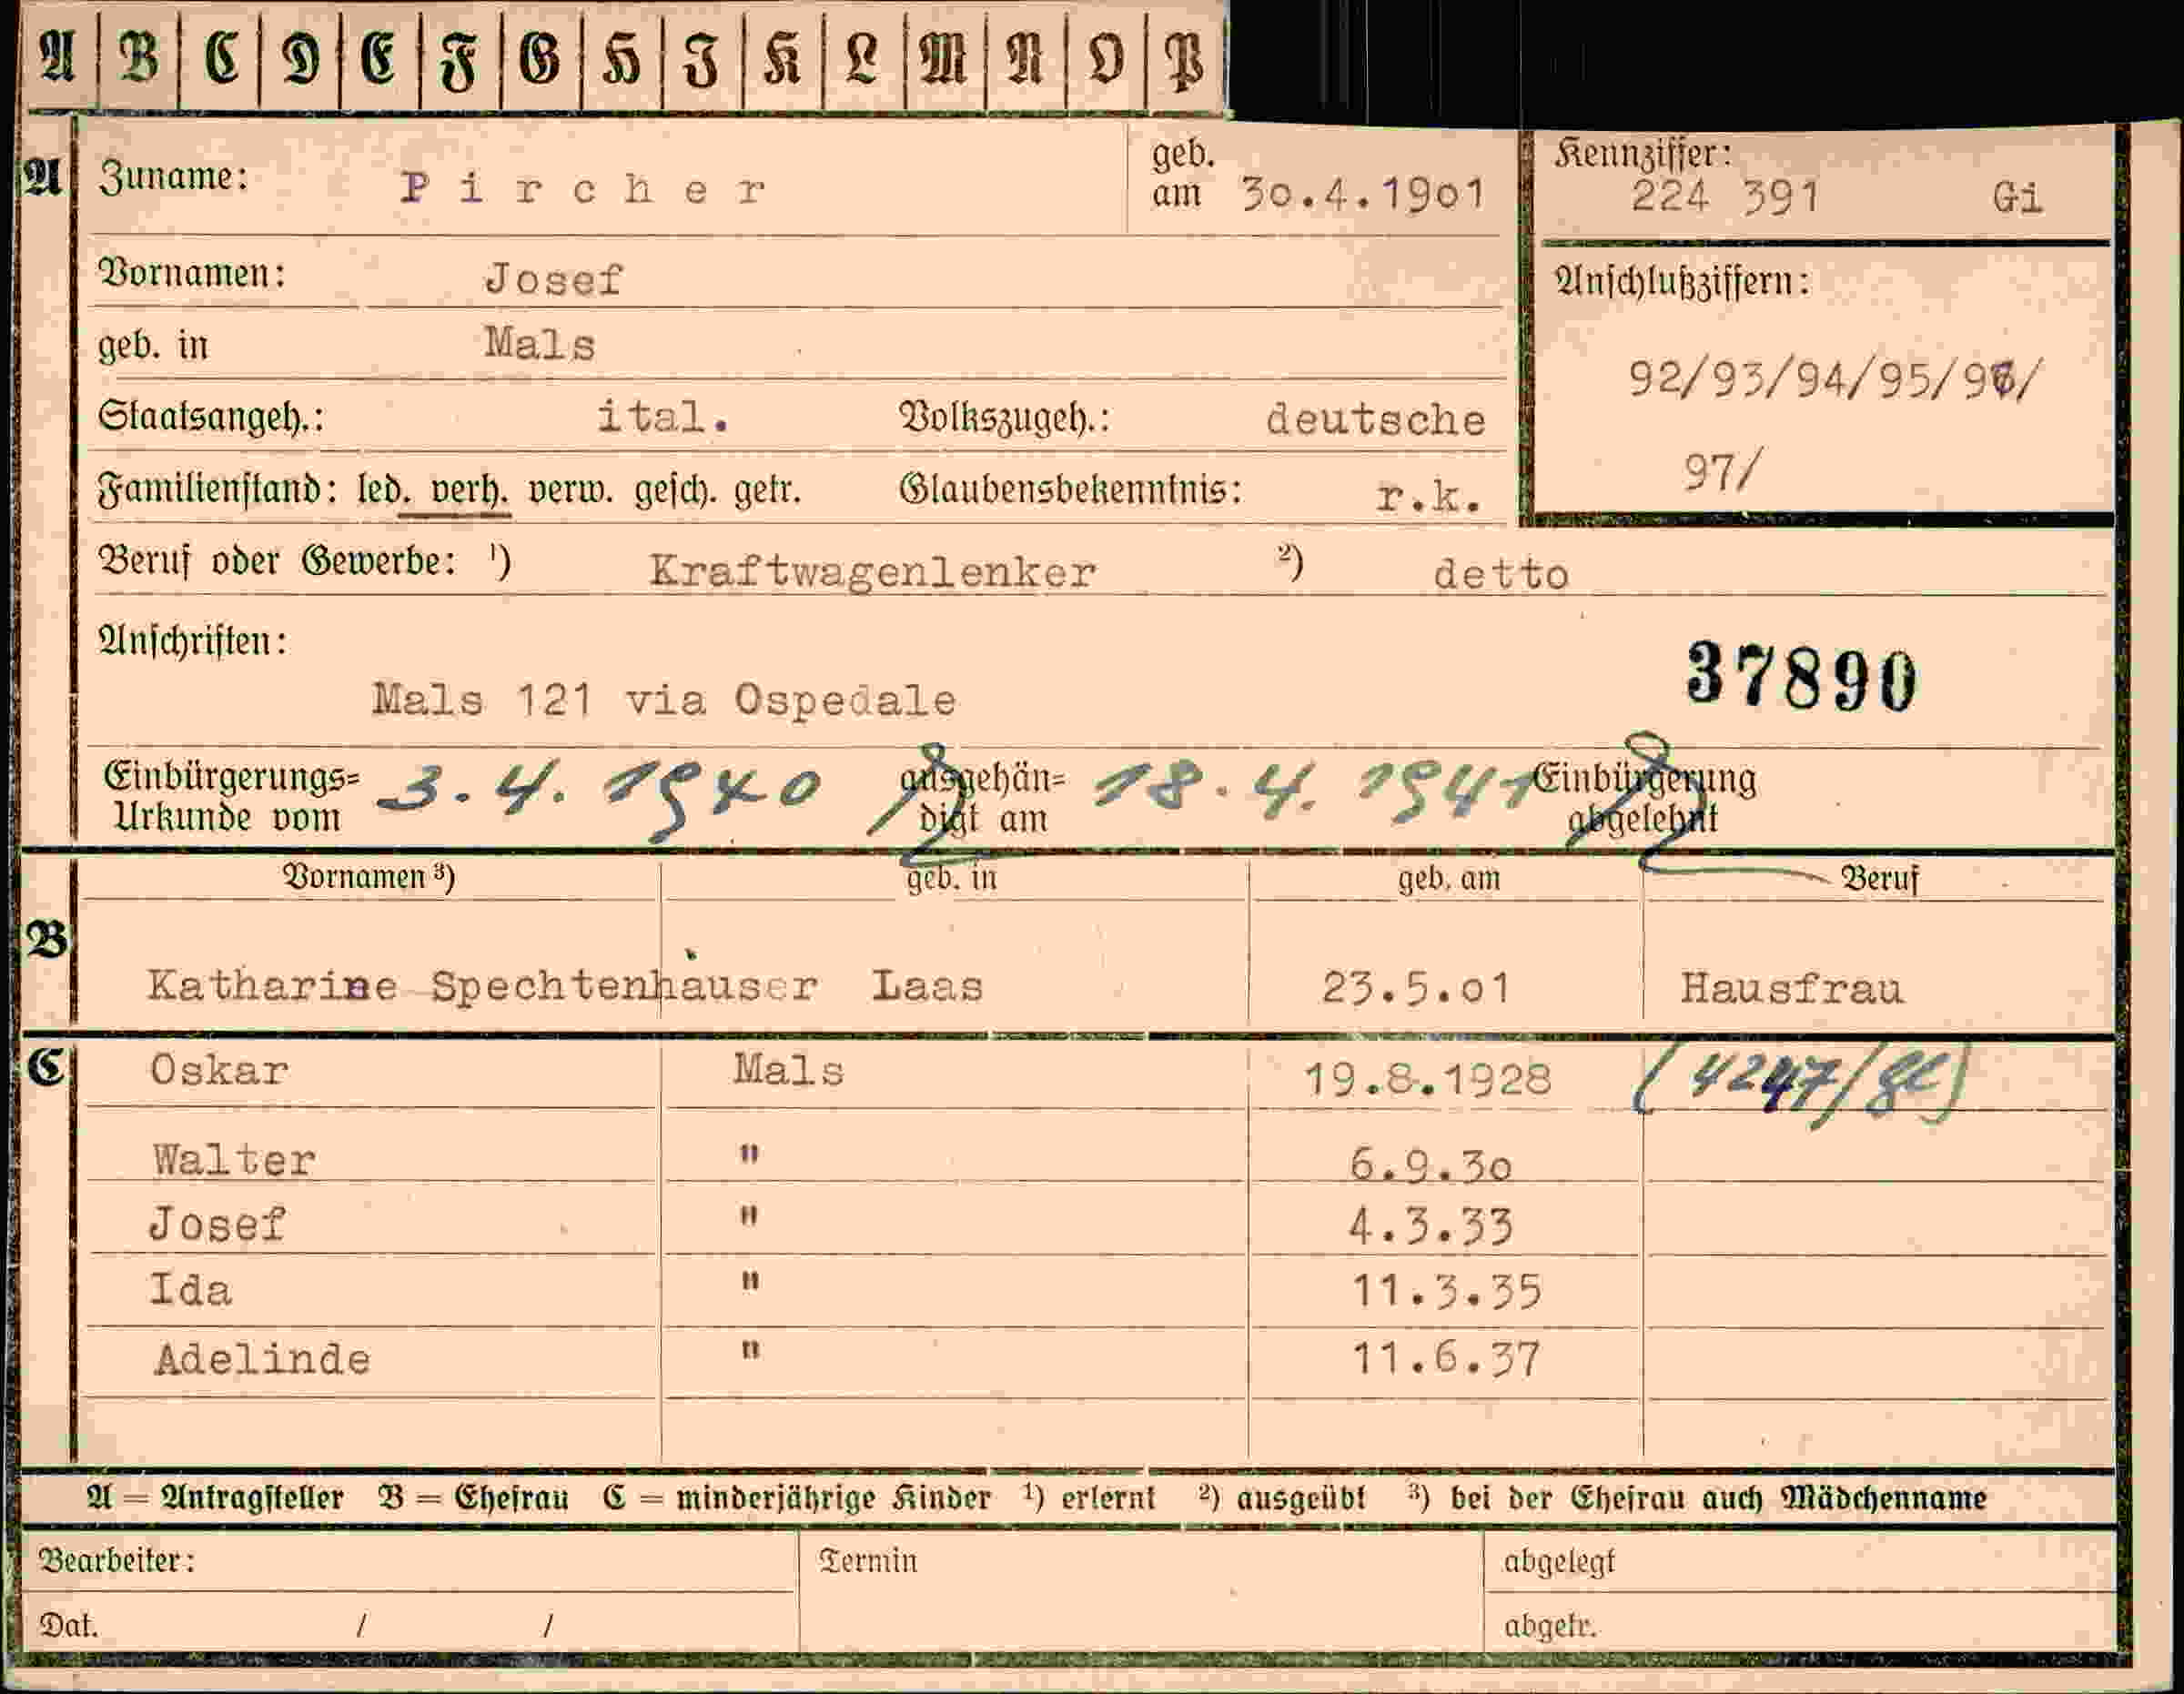 A B C D E F G H J K L M N O P
A Zuname: Pircher geb. am 30.4.1901
Kennziffer: 224 391 Gi
Vornamen: Josef
Anschlußziffern:
geb. in Mals
92/93/94/95/96/
Staatsangeh.: ital. Volkszugeh.: deutsche
97/
Familienstand: led. verh. verw. gesch. getr. Glaubensbekenntnis: r.k.
Beruf oder Gewerbe: ¹) Kraftwagenlenker ²) detto
Anschriften:
37890
Mals 121 via Ospedale
Einbürgerungs= 3.4.1940 ausgehän= 18.4.1941 Einbürgerung
Urkunde vom digt am abgelehnt
Vornamen ³) geb. in geb. am Beruf
B
Katharine Spechtenhauser Laas 23.5.01 Hausfrau
C Oskar Mals 19.8.1928
Walter " 6.9.30
Josef " 4.3.33
Ida " 11.3.35
Adelinde " 11.6.37
A = Antragsteller B = Ehefrau C = minderjährige Kinder ¹) erlernt ²) ausgeübt ³) bei der Ehefrau auch Mädchenname
Bearbeiter: Termin abgelegt
Dat. / / abgetr.